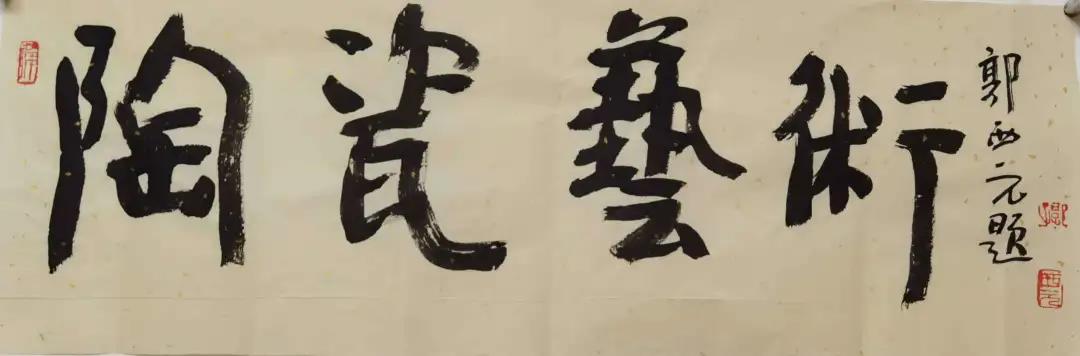 陶瓷藝術
郭西元題